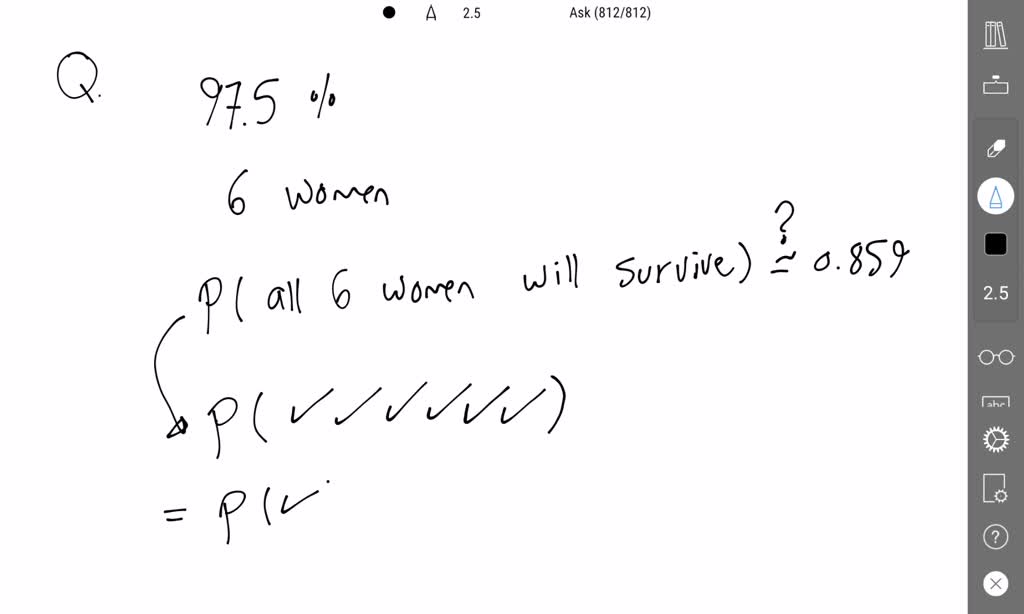 2.5 Ask (812/812)
Q. 97.5 %
6 women
P( all 6 women will survive) ≃? 0.859
P( ✓ ✓ ✓ ✓ ✓ ✓ )
= P( ✓
2.5
abc
?